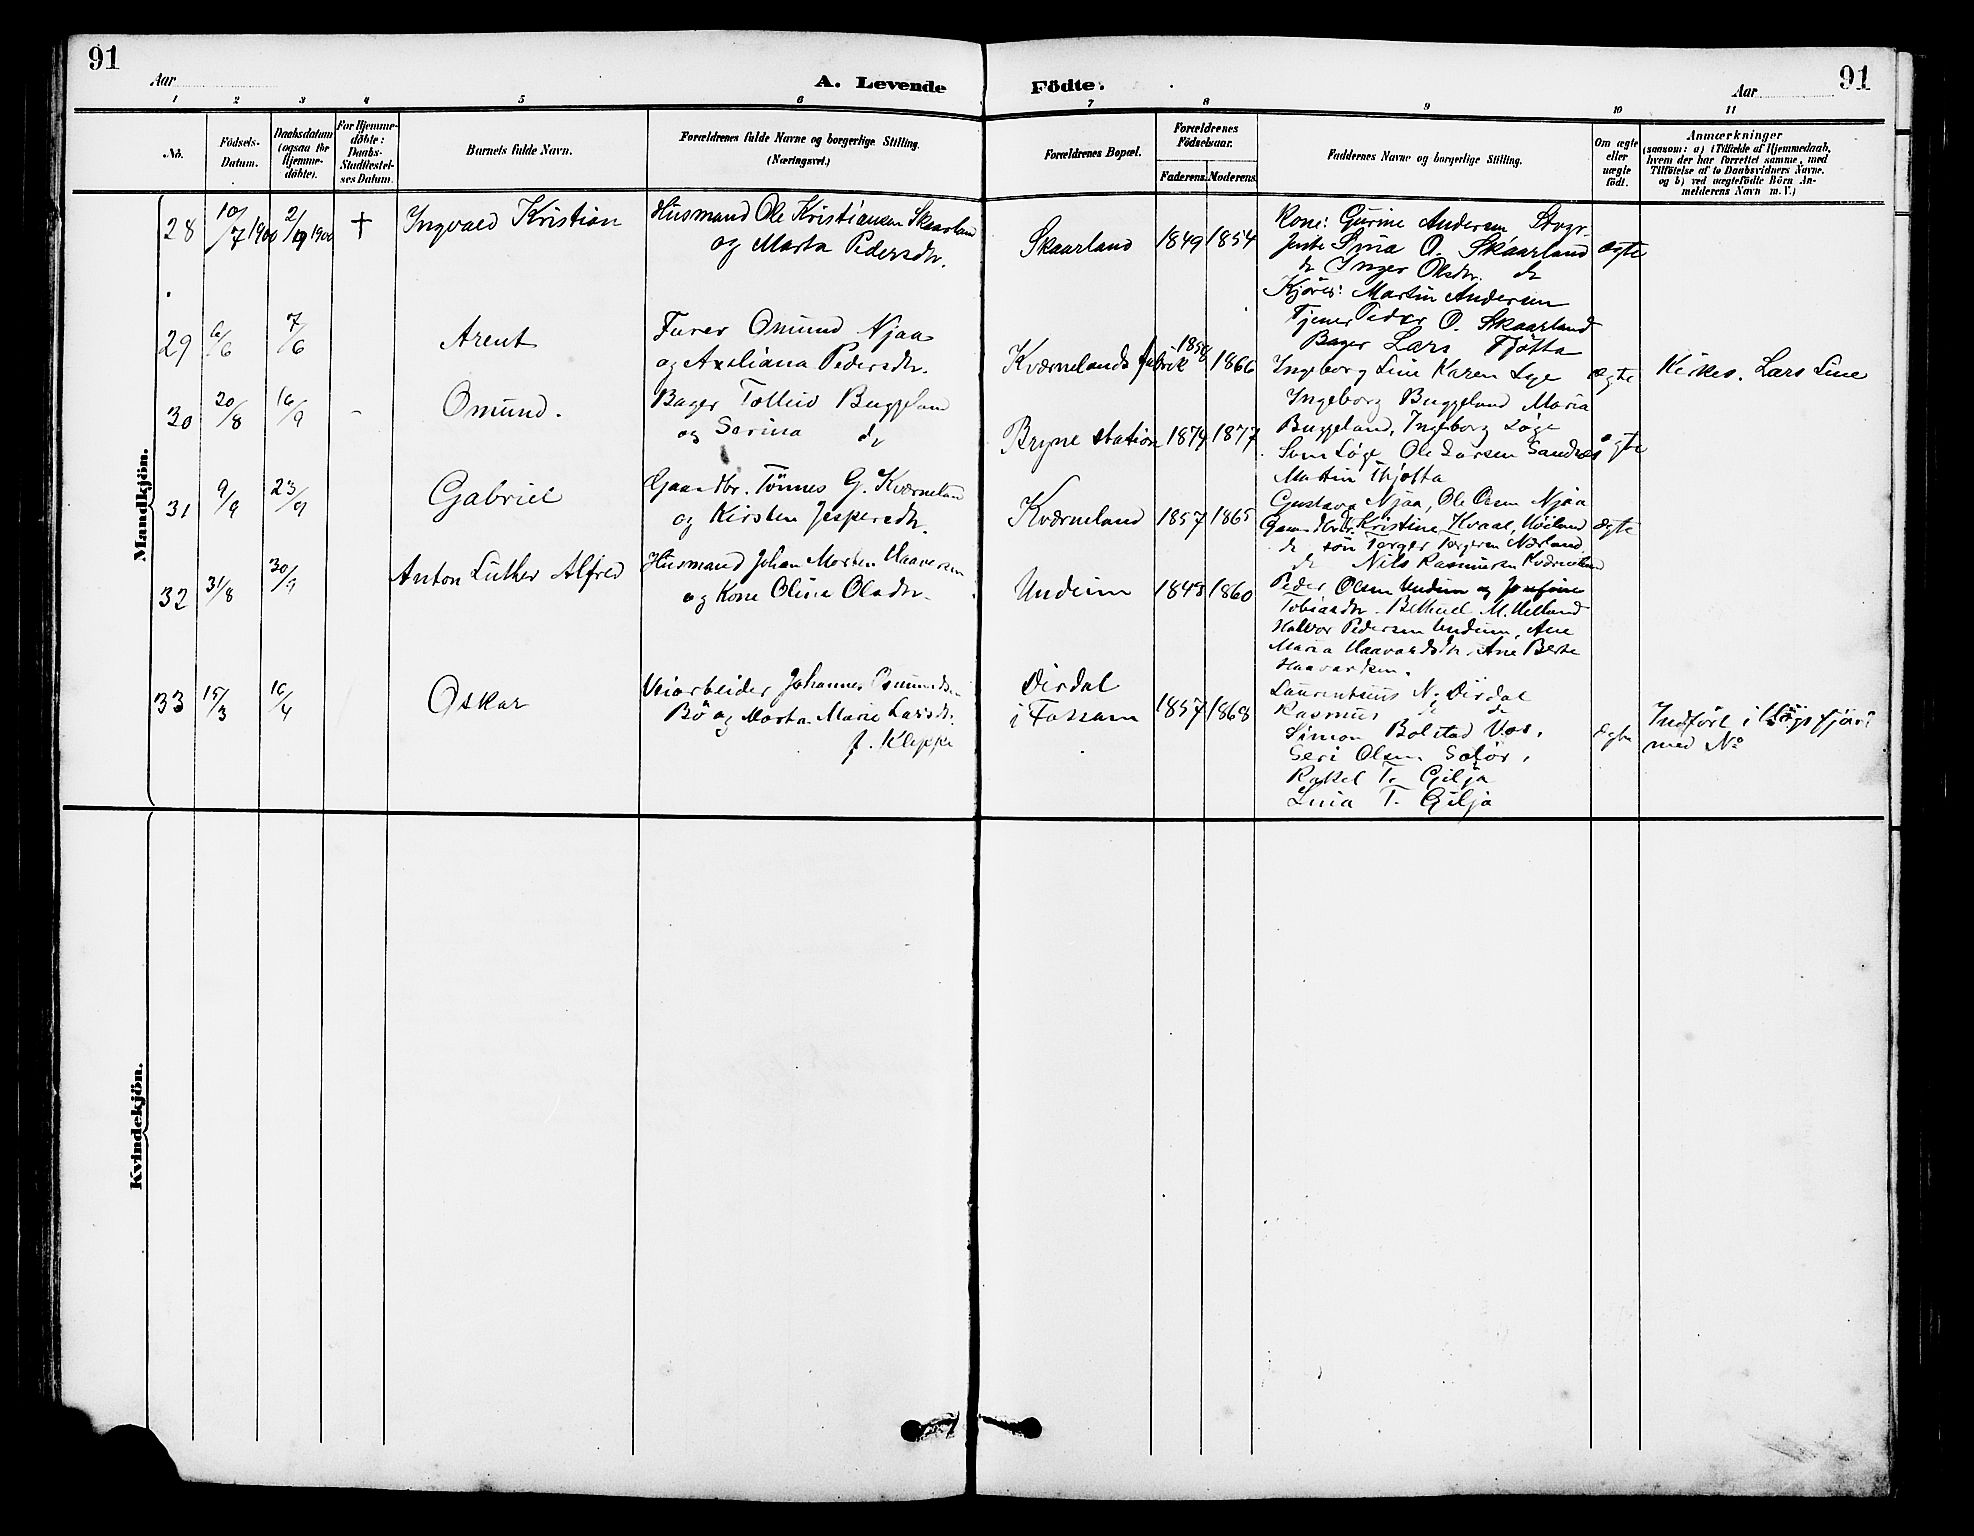 91
Aar
A. Levende Födte.
Aar
91
1 2 3 4 5 6 7 8 9 10 11
No.
Födsels-Datum.
Daabsdatum (ogsaa for Hjemme-döbte).
For Hjemme-döbte: Daabs-Stadfæstel-ses Datum.
Barnets fulde Navn.
Forældrenes fulde Navne og borgerlige Stilling. (Næringsvei.)
Forældrenes Bopæl.
Forældrenes Födselsaar.
Faderens. Moderens.
Faddernes Navne og borgerlige Stilling.
Om ægte eller uægte födt.
Anmærkninger
(saasom: a) i Tilfælde af Hjemmedaab, hvem der har forrettet samme, med Tilföielse af to Daabsvidners Navne, og b) ved uægtefödte Börn An-melderens Navn m. V.)
Mandkjön.
28 10/7 1900 2/9 1900 † Ingvald Kristian
Husmand Ole Kristiansen Skaarland
og Marta Pedersdtr.
Skaarland 1849 1854
Kone: Gurine Andersen
Jente Syna O. Skaarland
do Inger Olsdtr. do
Kjörer: Martin Andersen
Tjener Peder O. Skaarland
ægte
29 6/6 7/6 Arent
Omund Njaa
og Axeliana Pedersdtr.
Kværnelands fabrik 1858 1866
Bager Lars Tjøtta
Ingeborg Line Karen Lye
ægte
Lars Line
30 20/8 16/9 - Omund.
Bager Tollec Buggeland
og Serina do
Bryne station 1874 1877
Ingeborg Buggeland Maria
Buggeland, Ingeborg Løge
Sven Løge, Ole Larsen Sandnes
Martin Thjøtta
ægte
31 9/9 23/9 Gabriel
Gaardbr. Tönnes G. Kværneland
og Kirsten Jespersdtr.
Kværneland 1857 1865
Gustava Njaa, Ole Olsen Njaa
Kristine Kvaal,
do sön Torger Torgersen Nærland
do Nils Rasmussen Kværneland
ægte
32 31/8 30/9 Anton Luther Alfred
Husmand Johan Morten Haaversen
og Kone Oline Olsdtr.
Undeim 1849 1860
Peder Olsen Undeim og Josefine
Tobiasdtr. Bethuel M. Helland
Halvor Pedersen Undeim, Ane
Maria Haavardsdtr. Ane Berte
Haavardsen.
33 15/3 16/4 Oskar
Veiarbeider Johannes Osmundsen
Bö og Marta Marie Larsdtr.
f. Kleppe
Dirdal
i Fossan 1857 1868
Laurentsius N. Dirdal
Rasmus do do
Simon Bolstad Vos.
Seri Olsen
Rakel T. Gilja
Lina T. Gilja
ægte
Indført i Högsfjord
med No
Kvindekjön.